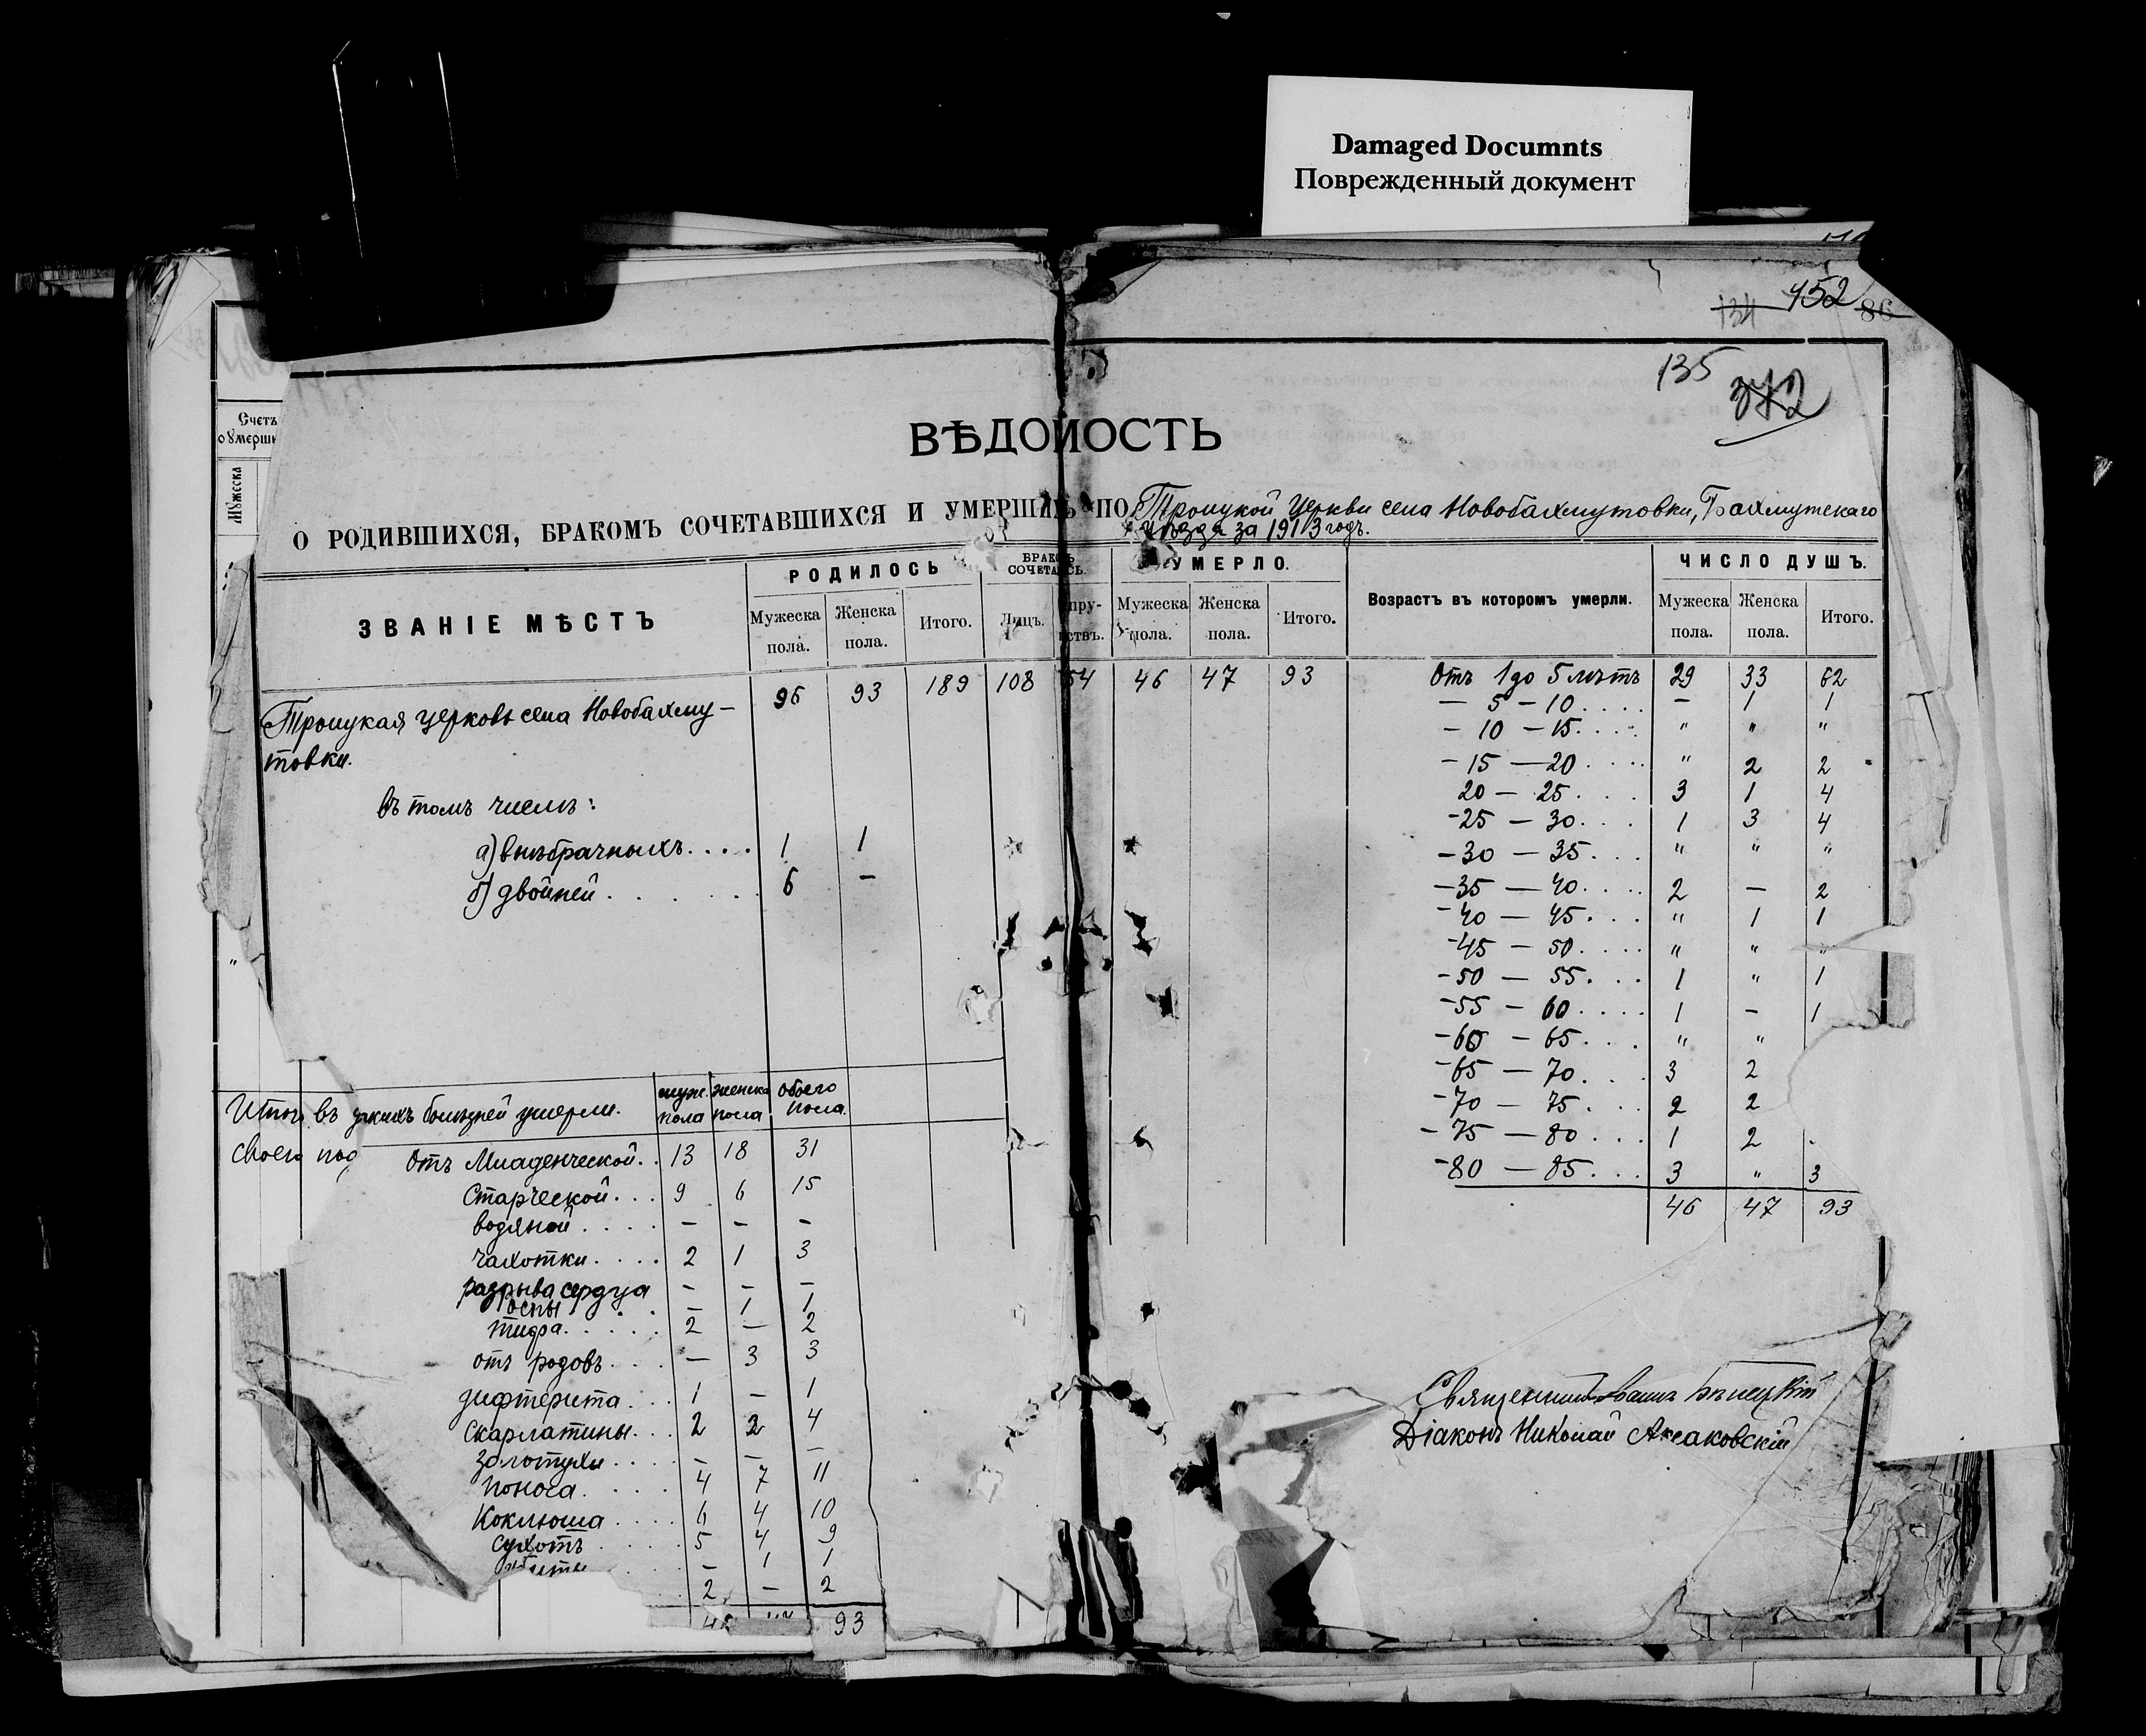 Damaged Documnts
Поврежденный документ
134 152 86
135
372
Счетъ
Мужеска
ВѢДОМОСТЬ
О РОДИВШИХСЯ, БРАКОМЪ СОЧЕТАВШИХСЯ И УМЕРШИХЪ ПО Троицкой Церкви села Новобахмутовки, Бахмутскаго
уѣзда за 1913 годъ.
ЗВАНІЕ МѢСТЪ РОДИЛОСЬ БРАКОМЪ СОЧЕТАЛИСЬ. УМЕРЛО. Возрастъ въ которомъ умерли. ЧИСЛО ДУШЪ.
Мужеска пола. Женска пола. Итого. Лицъ. Мужеска пола. Женска пола. Итого. Мужеска пола. Женска пола. Итого.
Троицкая церковь села Новобахму- 96 93 189 108 54 46 47 93
товки.
въ томъ числѣ:
а) внѣбрачныхъ.... 1 1
б) двойней . . . . . . 6 —
Отъ 1 до 5 лѣтъ 29 33 62
— 5 – 10.... – 1 1
– 10 – 15.... " " "
– 15 — 20.... " 2 2
20 – 25... 3 1 4
– 25 – 30... 1 3 4
– 30 – 35... " " "
– 35 — 40.... 2 — 2
– 40 — 45... " 1 1
– 45 – 50.... " " "
– 50 – 55... 1 " 1
– 55 – 60.... 1 – 1
– 60 – 65... " "
– 65 – 70... 3 2
– 70 – 75... 2 2
– 75 – 80... 1 2
– 80 – 85... 3 " 3
46 47 93
Итого
своего
въ какихъ болѣзней умерли. муж. пола женска пола обоего пола.
Отъ Младенческой.. 13 18 31
Старческой... 9 6 15
водяной.... – – –
чахотки.... 2 1 3
разрыва сердца – – –
оспы . . – 1 1
тифа..... 2 — 2
отъ родовъ... — 3 3
дифтерита... 1 – 1
Скарлатины... 2 2 4
Золотухи.... – – –
поноса..... 4 7 11
Коклюша.... 6 4 10
Сухотъ..... 5 4 9
– 1 1
2 – 2
93
Священникъ Іоаннъ Бѣлецкій
Діаконъ Николай Аксаковскій